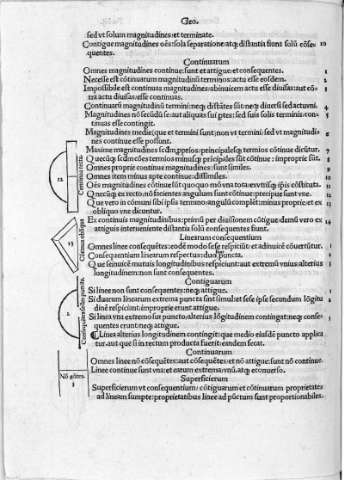 Geo.
sed vt solum magnitudines: et terminate.
Contigue magnitudines oēs: sola separatione: atq; distantia fiunt solū cōse 10
quentes.
Continuarum
Omnes magnitudines continue: sunt et attigue: et consequentes. 1
Necesse est cōtinuatum magnitudinū terminos: actu esse eosdem. 2
Impossibile est continuata magnitudines: abinuicem actu esse diuisas: aut cō 3
tra actu diuisas. esse continuas.
Continuarū magnitudinū termini: neq; distātes sūt: neq; diuersi sed actu vni. 4
Magnitudines nō secūdū se: aut aliquas sui ptes: sed suis solis terminis: con 5
tinuas esse contingit.
Magnitudines medie: que et termini sunt: non vt termini: sed vt magnitudi 6
nes continue esse possunt.
Maxime magnitudines: scdm, principales: termios cōtinue dicūtur. 7
Quecūq; scdm cōes termios minusq; principales sūt cōtinue: improprie sūt. 8
Omnes proprie continue magnitudines: sunt similes. 9
Omnes item minus apte continue: dissimiles. 10
Ois magnitudines cōtinue sūt: quo quo mō vna tota: ex vtrisq; ipis cōstituta. 11
Quecūq; ex recto. nō faciētes angulum sunt cōtinue: precipue sunt vne. 12
Que vero in cōmuni sibi ipsis termino: angulū complēt: minus proprie: et ex 13
obliquo vne dicuntur.
Ex continuis magnitudinibus: primū per diuisionem cōtigue: demū vero ex 14
attiguis interueniente distantia solū consequentes fiunt.
Linearum consequentium
Omnes linee consequētes: eodē modo sese respiciūt: et adinuicē cōuertūtur. 1
Consequentium linearum respectus: duo puncta. 2
Que se inuicē mutuis longitudinibus respiciunt: aut extremū vnius alterius 3
longitudinem: non sunt consequentes.
Contiguarum
Si linee non sunt consequentes: neq; attigue. 1
Si duarum linearum extrema puncta sint simul: et sese ipsis secundum lōgitu 2
dinē respiciant: improprie erunt attigue.
Si linea vna extremo sui puncto. alterius lōgitudinem contingat: neq; conse 3
quentes erunt neq; attigue.
¶ Linea alterius longitudinem contingit: que medio eiusdē puncto applica
tur. aut que si in rectum producta fuerit: eandem secat.
Continuarum
Omnes linee nō cōsequētes: aut cōsequētes: et nō attigue: sunt nō continue. 1
Linee continue sunt vna: et earum extrema: vnū. atq; econuerso. 2
Superficierum
Superficierum vt consequentium: cōtiguarum et cōtinuarum proprietates
ad lineam sumpte: proprietatibus linee ad pūctum sunt proportionabiles.
12
13
2
Nō gōtes.
3